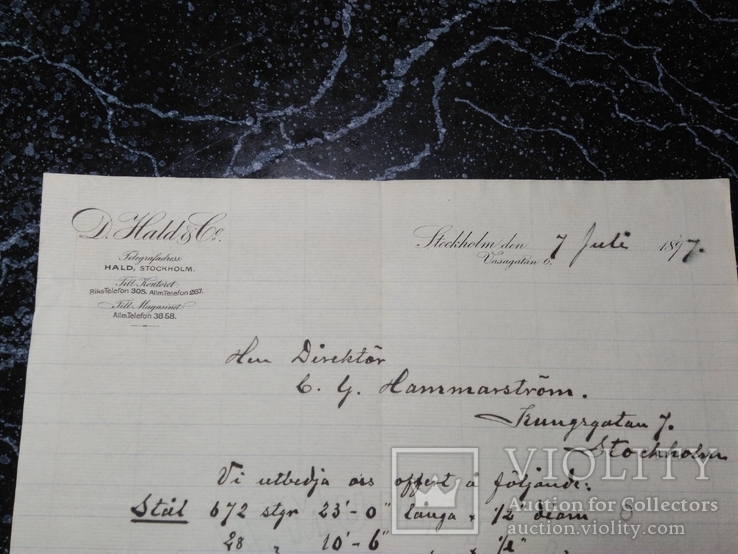 D. Hald & Co.
Telegrafadress
HALD, STOCKHOLM.
Till Kontoret
RiksTelefon 305. Allm.Telefon
Till Magasinet
Allm.Telefon 38 58.
Stockholm den 7 Juli 1897.
Vasagatan 6.
Herr Direktör
C. G. Hammarström.
Kungsgatan 7.
Stockholm
Vi utbedja oss offert å följande:
Stål 672 styr 23'-0" långa, 1/2" diam 8
28 " 10'-6" " 1/2"
VIOLITY
Auction for Collectors
auction.violity.com